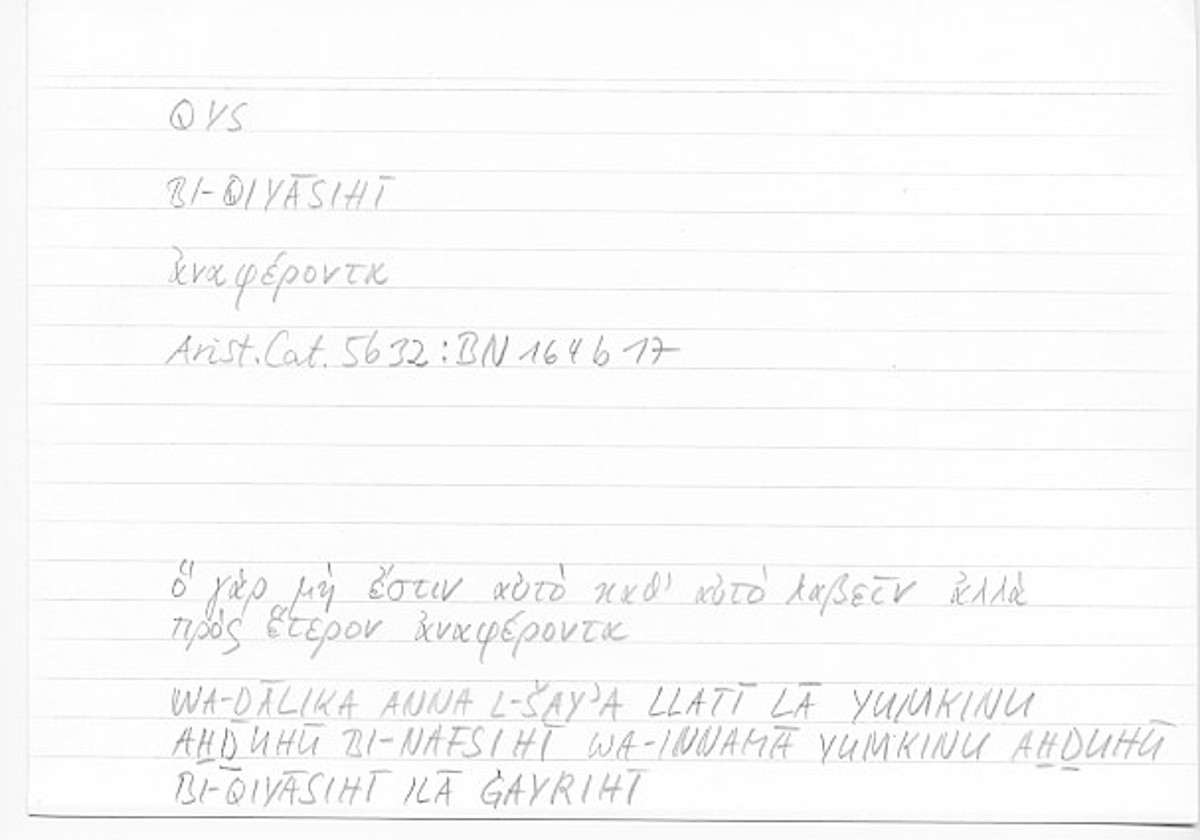 QYS
BI-QIYĀSIHĪ
ἀναφέροντα
Arist.Cat. 5b32:BN 164b17
ὃ γὰρ μὴ ἔστιν αὐτὸ καθ' αὑτὸ λαβεῖν ἀλλὰ
πρὸς ἕτερον ἀναφέροντα
WA-ḎĀLIKA ANNA L-ŠAYʾA LLATĪ LĀ YUMKINU
AḪḎUHŪ BI-NAFSIHĪ WA-INNAMĀ YUMKINU AḪḎUHŪ
BI-QIYĀSIHĪ ILĀ ĠAYRIHĪ